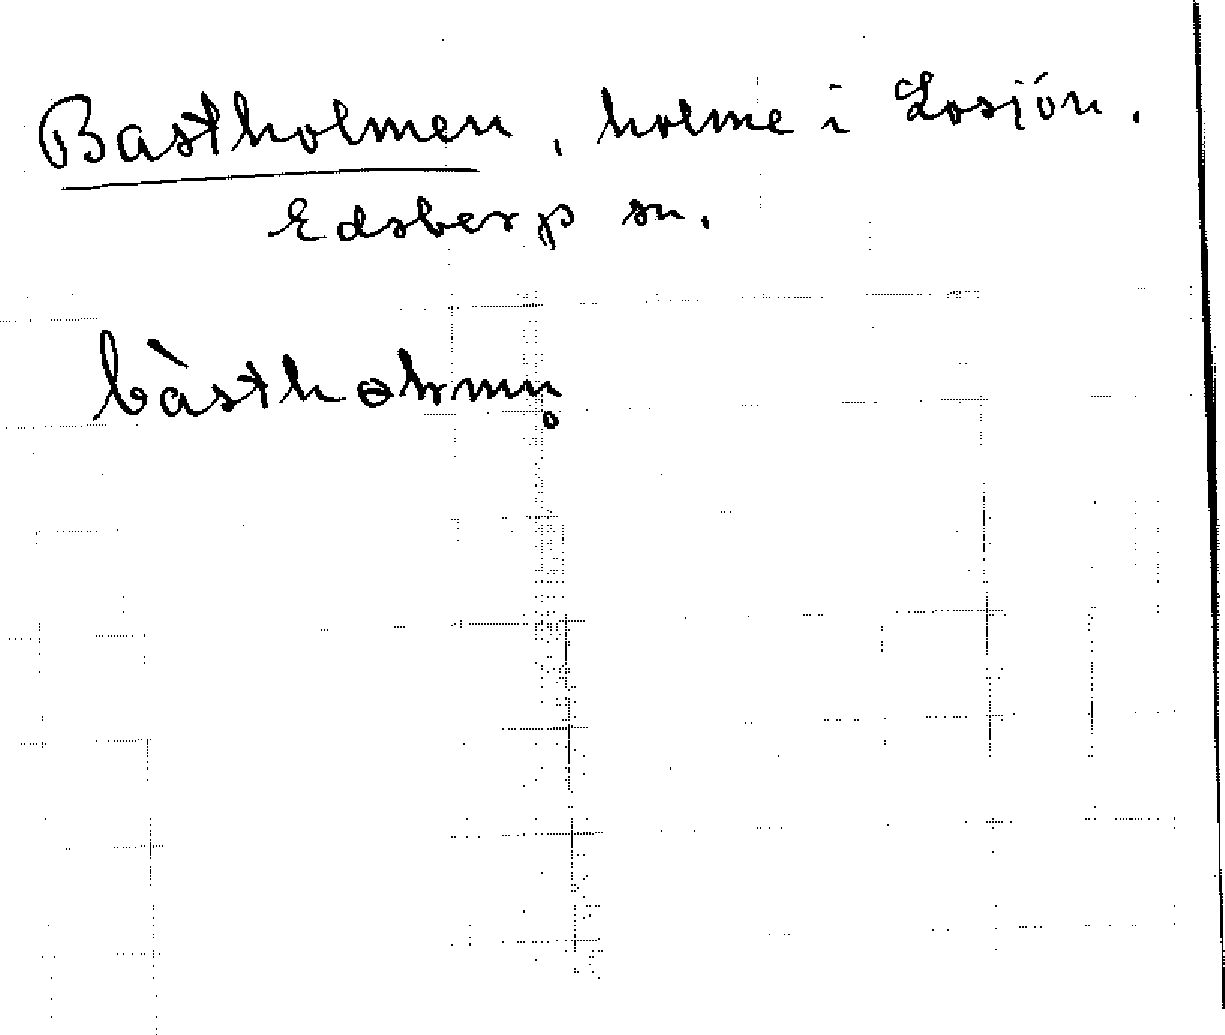 Bastholmen, holme i Losjön.
Edsberg sn.
bàsthɵlmn̥